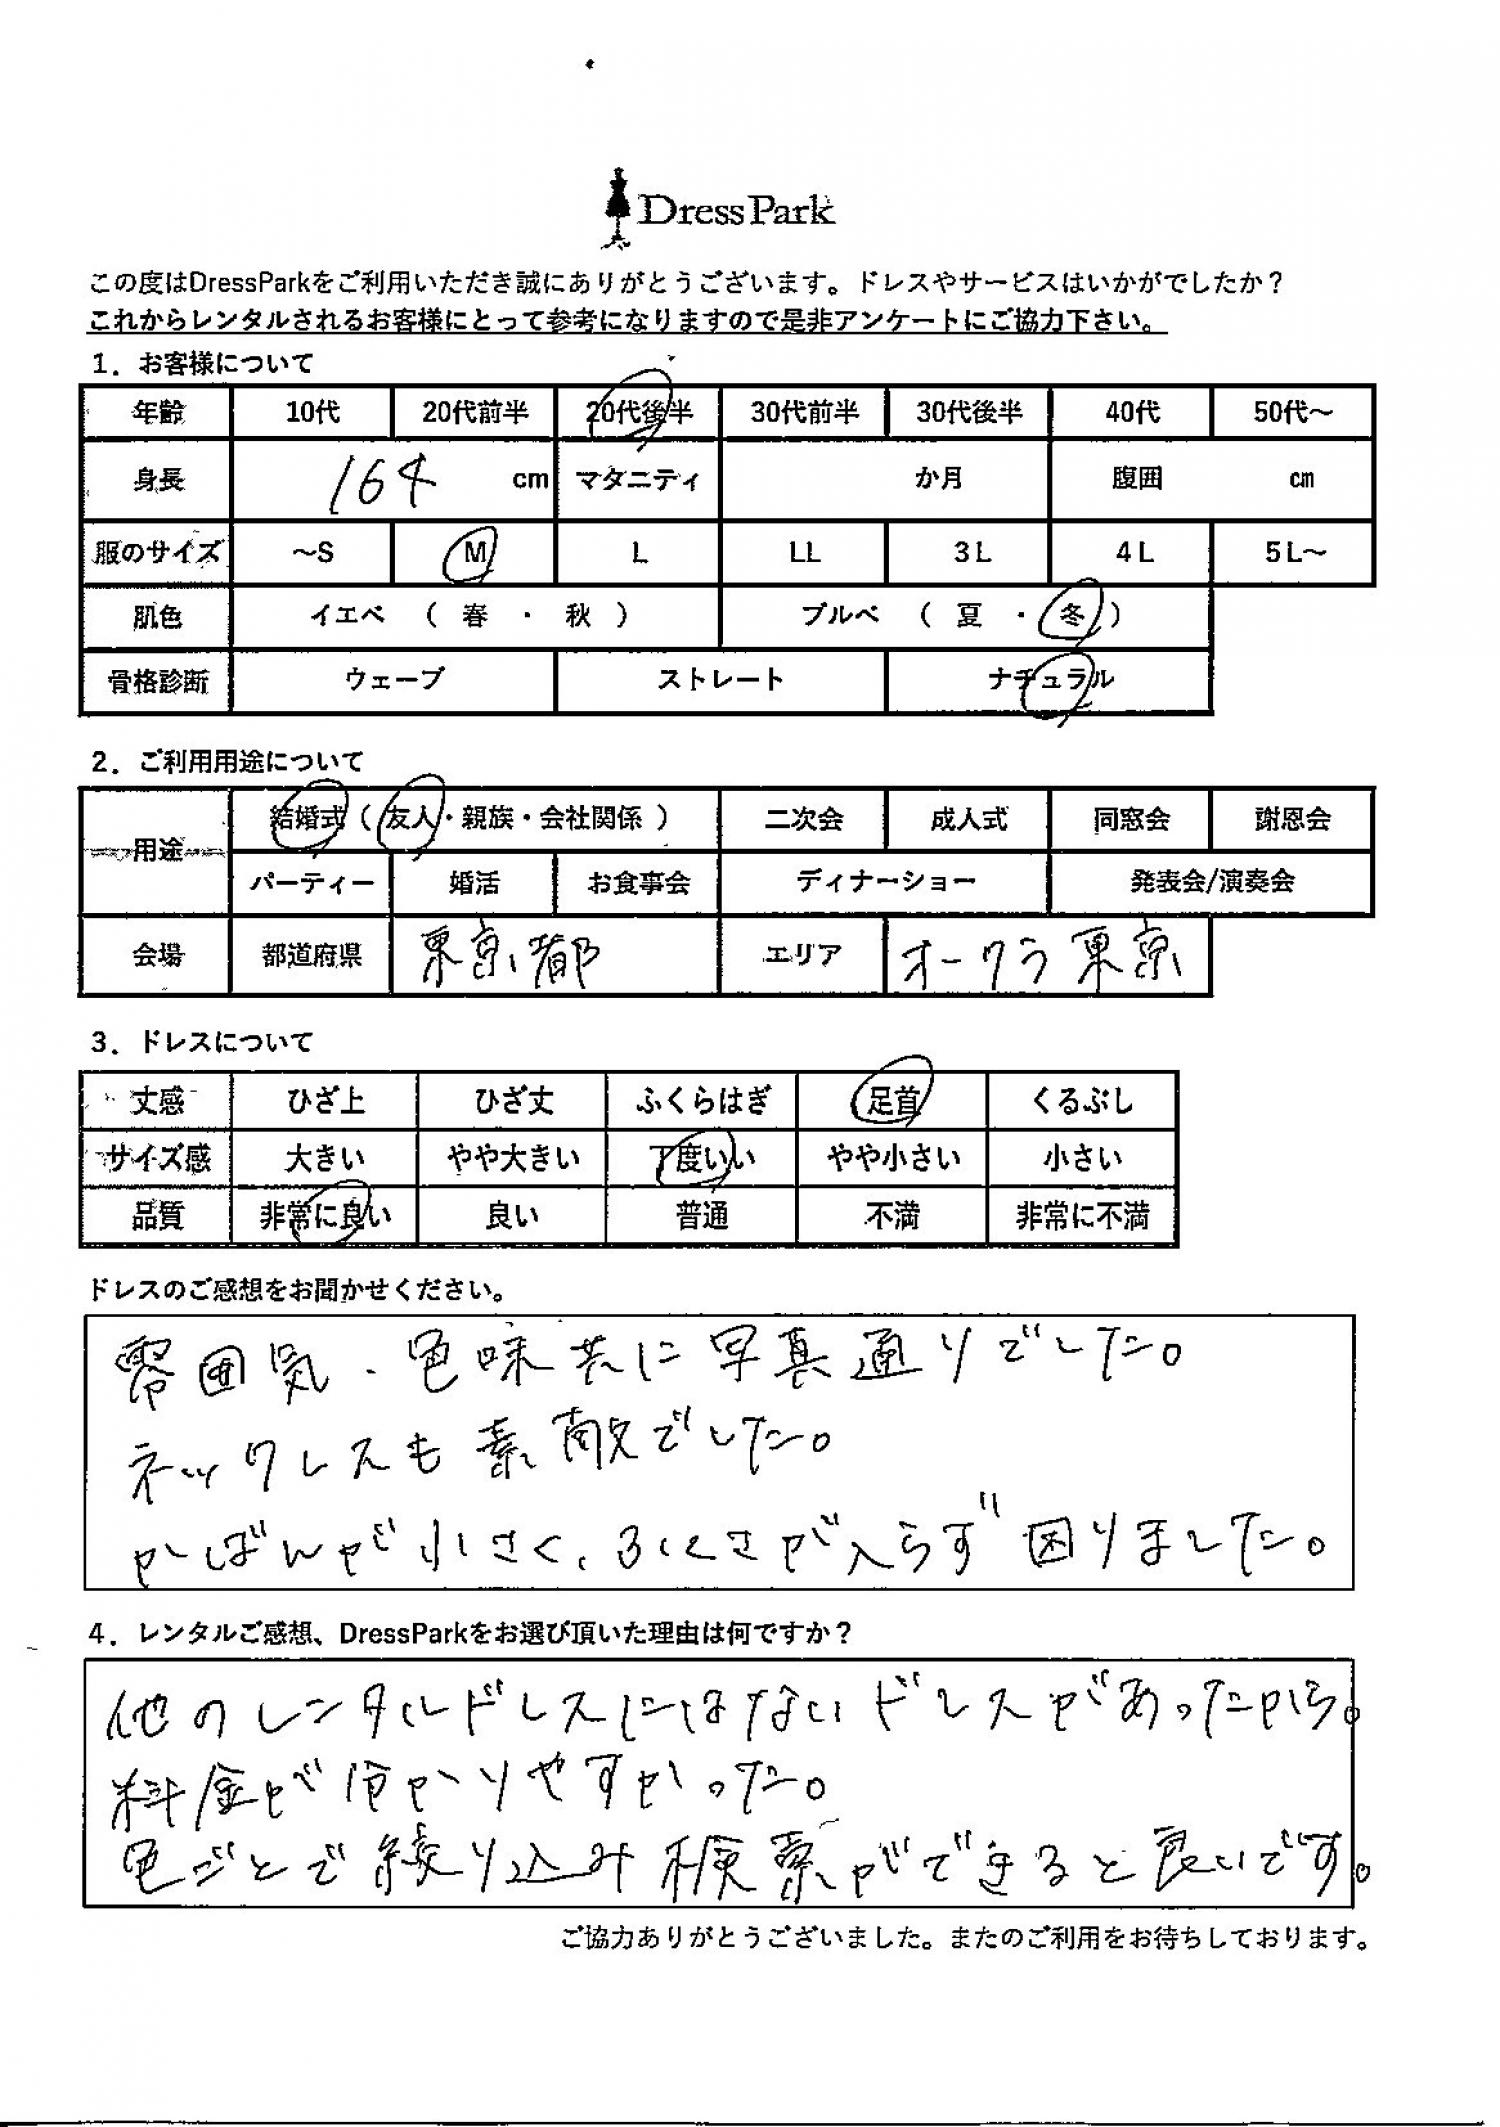 DressPark
この度はDressParkをご利用いただき誠にありがとうございます。ドレスやサービスはいかがでしたか？
これからレンタルされるお客様にとって参考になりますので是非アンケートにご協力下さい。
1．お客様について
年齢 10代 20代前半 20代後半 30代前半 30代後半 40代 50代～
身長 164 cm マタニティ か月 腹囲 ㎝
服のサイズ ～S M L LL 3L 4L 5L～
肌色 イエベ （ 春 ・ 秋 ） ブルベ （ 夏 ・ 冬 ）
骨格診断 ウェーブ ストレート ナチュラル
2．ご利用用途について
用途 結婚式（ 友人・親族・会社関係 ） 二次会 成人式 同窓会 謝恩会
パーティー 婚活 お食事会 ディナーショー 発表会/演奏会
会場 都道府県 東京都 エリア オークラ東京
3．ドレスについて
丈感 ひざ上 ひざ丈 ふくらはぎ 足首 くるぶし
サイズ感 大きい やや大きい 丁度いい やや小さい 小さい
品質 非常に良い 良い 普通 不満 非常に不満
ドレスのご感想をお聞かせください。
雰囲気・色味共に写真通りでした。
ネックレスも素敵でした。
かばんが小さく、ふくさが入らず困りました。
4．レンタルご感想、DressParkをお選び頂いた理由は何ですか？
他のレンタルドレスにはないドレスがあったから。
料金が分かりやすかった。
色ごとで絞り込み検索ができると良いです。
ご協力ありがとうございました。またのご利用をお待ちしております。